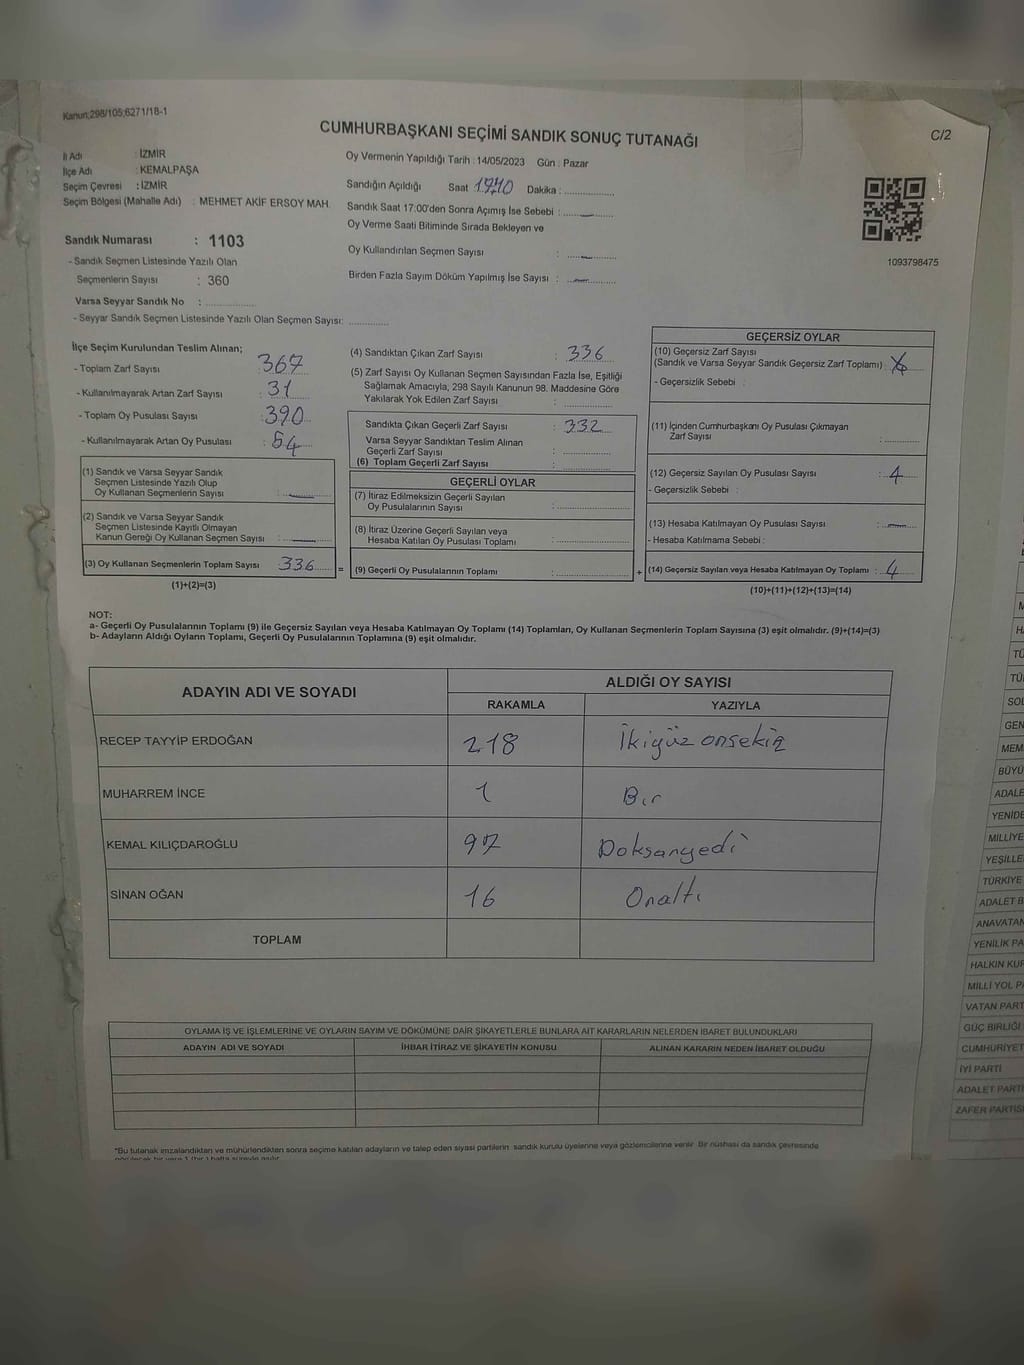 Kanun;298/105;6271/18-1
CUMHURBAŞKANI SEÇİMİ SANDIK SONUÇ TUTANAĞI
C/2
İl Adı : İZMİR
İlçe Adı : KEMALPAŞA
Seçim Çevresi : İZMİR
Seçim Bölgesi (Mahalle Adı) : MEHMET AKİF ERSOY MAH.
Sandık Numarası : 1103
- Sandık Seçmen Listesinde Yazılı Olan
Seçmenlerin Sayısı : 360
Varsa Seyyar Sandık No :
- Seyyar Sandık Seçmen Listesinde Yazılı Olan Seçmen Sayısı:
Oy Vermenin Yapıldığı Tarih : 14/05/2023 Gün : Pazar
Sandığın Açıldığı Saat Dakika :
Sandık Saat 17:00'den Sonra Açımış İse Sebebi :
Oy Verme Saati Bitiminde Sırada Bekleyen ve
Oy Kullandırılan Seçmen Sayısı :
Birden Fazla Sayım Döküm Yapılmış İse Sayısı :
1093798475
İlçe Seçim Kurulundan Teslim Alınan;
- Toplam Zarf Sayısı : 367
- Kullanılmayarak Artan Zarf Sayısı : 31
- Toplam Oy Pusulası Sayısı : 390
- Kullanılmayarak Artan Oy Pusulası : 54
(1) Sandık ve Varsa Seyyar Sandık
Seçmen Listesinde Yazılı Olup
Oy Kullanan Seçmenlerin Sayısı :
(2) Sandık ve Varsa Seyyar Sandık
Seçmen Listesinde Kayıtlı Olmayan
Kanun Gereği Oy Kullanan Seçmen Sayısı :
(3) Oy Kullanan Seçmenlerin Toplam Sayısı 336 =
(1)+(2)=(3)
(4) Sandıktan Çıkan Zarf Sayısı : 336
(5) Zarf Sayısı Oy Kullanan Seçmen Sayısından Fazla İse, Eşitliği
Sağlamak Amacıyla, 298 Sayılı Kanunun 98. Maddesine Göre
Yakılarak Yok Edilen Zarf Sayısı :
Sandıkta Çıkan Geçerli Zarf Sayısı : 332
Varsa Seyyar Sandıktan Teslim Alınan
Geçerli Zarf Sayısı :
(6) Toplam Geçerli Zarf Sayısı :
GEÇERLİ OYLAR
(7) İtiraz Edilmeksizin Geçerli Sayılan
Oy Pusulalarının Sayısı :
(8) İtiraz Üzerine Geçerli Sayılan veya
Hesaba Katılan Oy Pusulası Toplamı :
(9) Geçerli Oy Pusulalarının Toplamı : +
GEÇERSİZ OYLAR
(10) Geçersiz Zarf Sayısı
(Sandık ve Varsa Seyyar Sandık Geçersiz Zarf Toplamı) :
- Geçersizlik Sebebi :
(11) İçinden Cumhurbaşkanı Oy Pusulası Çıkmayan
Zarf Sayısı :
(12) Geçersiz Sayılan Oy Pusulası Sayısı : 4
- Geçersizlik Sebebi :
(13) Hesaba Katılmayan Oy Pusulası Sayısı :
- Hesaba Katılmama Sebebi :
(14) Geçersiz Sayılan veya Hesaba Katılmayan Oy Toplamı : 4
(10)+(11)+(12)+(13)=(14)
NOT:
a- Geçerli Oy Pusulalarının Toplamı (9) ile Geçersiz Sayılan veya Hesaba Katılmayan Oy Toplamı (14) Toplamları, Oy Kullanan Seçmenlerin Toplam Sayısına (3) eşit olmalıdır. (9)+(14)=(3)
b- Adayların Aldığı Oyların Toplamı, Geçerli Oy Pusulalarının Toplamına (9) eşit olmalıdır.
ADAYIN ADI VE SOYADI
ALDIĞI OY SAYISI
RAKAMLA YAZIYLA
RECEP TAYYİP ERDOĞAN 218 İkiyüz onsekiz
MUHARREM İNCE 1 Bir
KEMAL KILIÇDAROĞLU 97 Doksanyedi
SİNAN OĞAN 16 Onaltı
TOPLAM
OYLAMA İŞ VE İŞLEMLERİNE VE OYLARIN SAYIM VE DÖKÜMÜNE DAİR ŞİKAYETLERLE BUNLARA AİT KARARLARIN NELERDEN İBARET BULUNDUKLARI
ADAYIN ADI VE SOYADI İHBAR İTİRAZ VE ŞİKAYETİN KONUSU ALINAN KARARIN NEDEN İBARET OLDUĞU
*Bu tutanak imzalandıktan ve mühürlendikten sonra seçime katılan adayların ve talep eden siyasi partilerin sandık kurulu üyelerine veya gözlemcilerine verilir. Bir nüshası da sandık çevresinde
TÜRKİYE
YENİLİK PA
MİLLİ YOL PA
VATAN PART
GÜÇ BİRLİĞİ
CUMHURİYET
İYİ PARTİ
ADALET PARTİ
ZAFER PARTİSİ